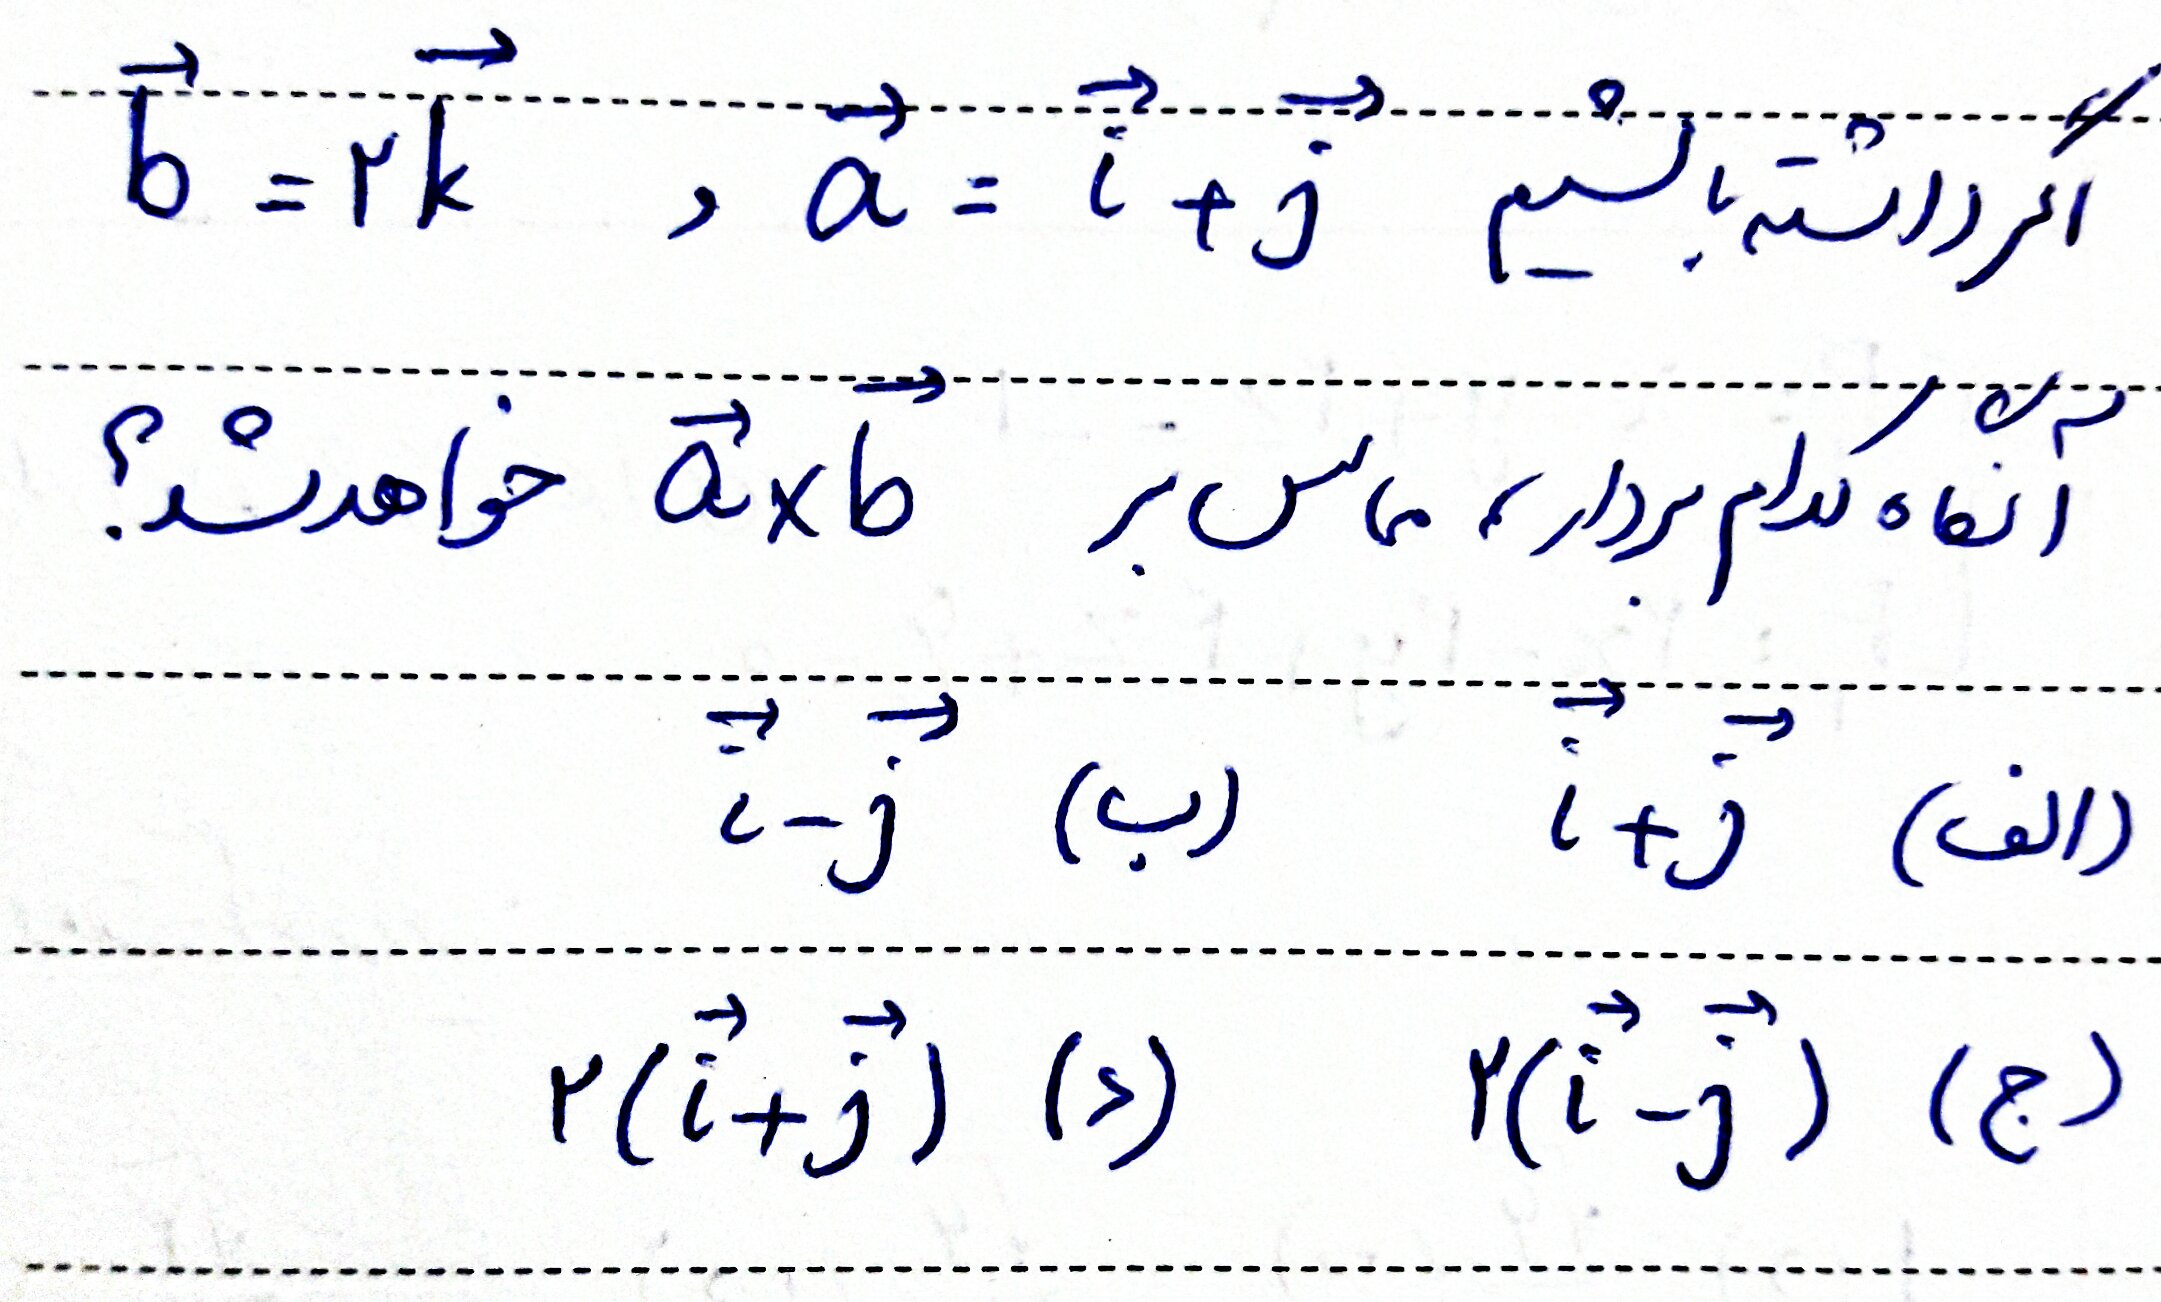 اگر داشته باشیم $\vec{a} = \vec{i} + \vec{j}$ , $\vec{b} = ۲\vec{k}$
آنگاه کدام بردار، مماس بر $\vec{a} \times \vec{b}$ خواهد شد؟
(الف) $\vec{i} + \vec{j}$ (ب) $\vec{i} - \vec{j}$
(ج) $۲(\vec{i} - \vec{j})$ (د) $۲(\vec{i} + \vec{j})$